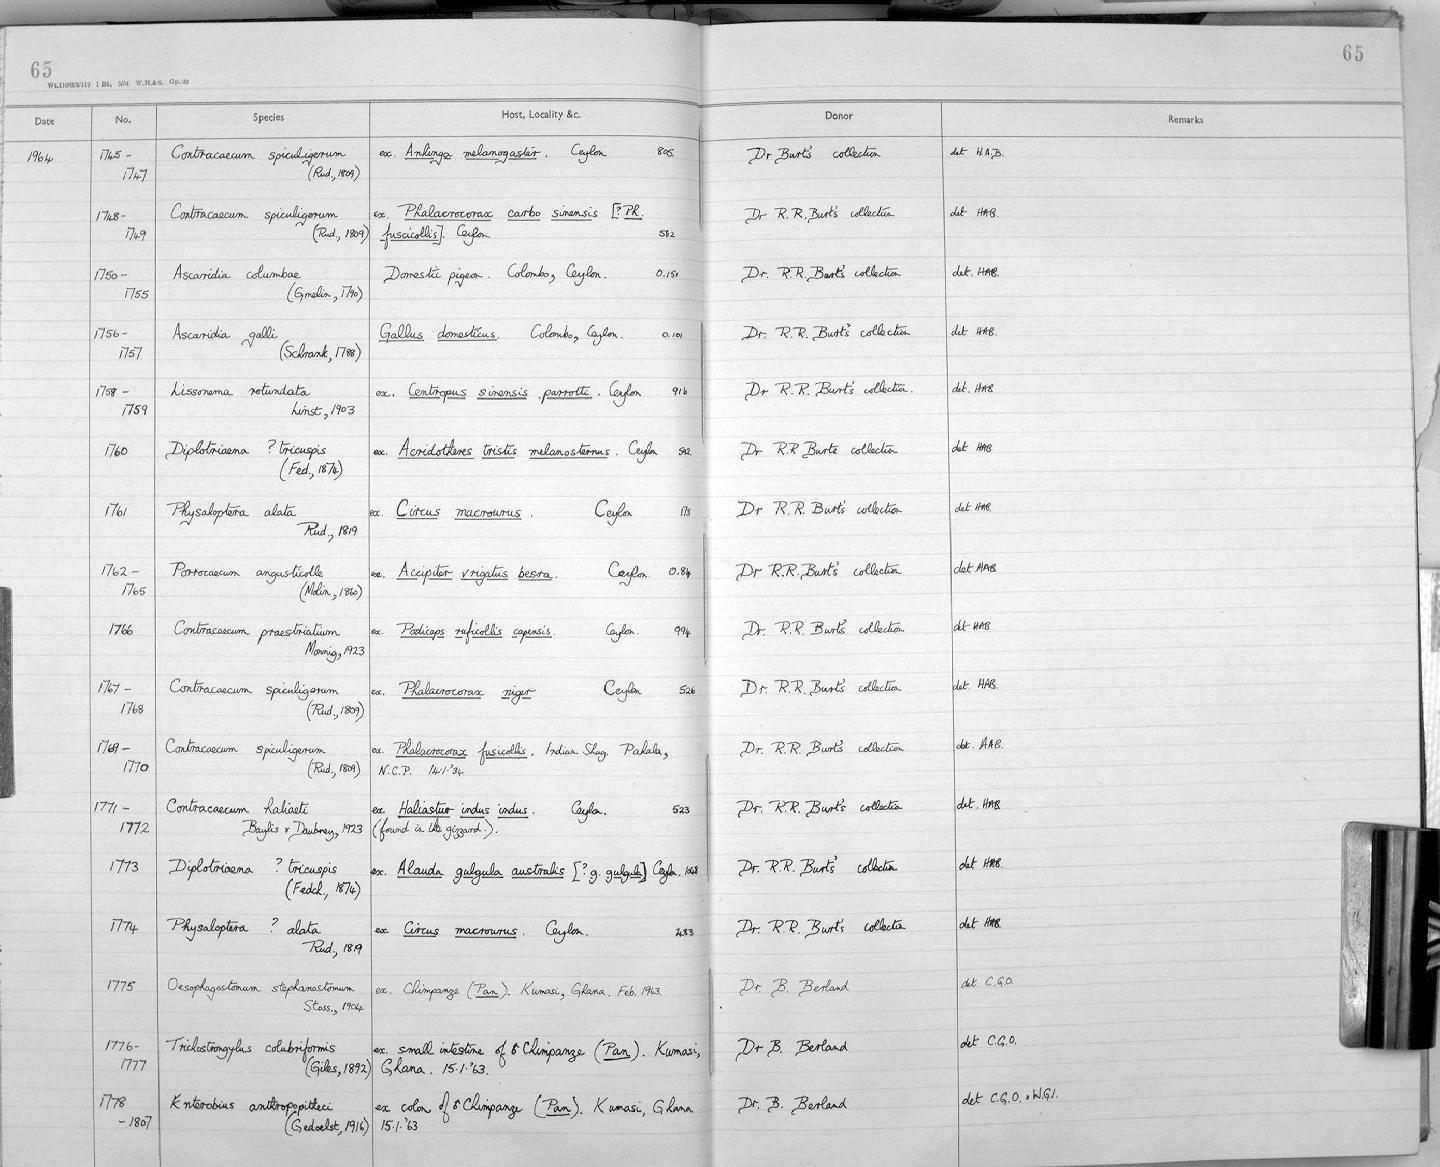 65
65
Wt.11082/2/119 1 Bk. 5/64 W.H.&S. Gp.22
Date No. Species Host, Locality &c. Donor Remarks
1964 1745 - Contracaecum spiculigerum ex. Anhinga melanogaster. Ceylon 805. Dr Burt's collection det H.A.B.
1747 (Rud., 1809)
1748- Contracaecum spiculigerum ex. Phalacrocorax carbo sinensis [?Ph. Dr R.R. Burt's collection det HAB.
1749 (Rud., 1809) fuscicollis]. Ceylon 582
1750 - Ascaridia columbae Domestic pigeon. Colombo, Ceylon. 0.151 Dr. R.R. Burt's collection det. HAB.
1755 (Gmelin, 1790)
1756 - Ascaridia galli Gallus domesticus. Colombo, Ceylon. 0.101 Dr. R.R. Burt's collection det HAB.
1757 (Schrank, 1788)
1758 - Lissonema rotundata ex. Centropus sinensis parroti. Ceylon 916 Dr R.R. Burt's collection. det. HAB
1759 Linst., 1903
1760 Diplotriaena ? tricuspis ex. Acridotheres tristis melanosternus. Ceylon 592 Dr R.R Burts collection det HAB
(Fed., 1874)
1761 Physaloptera alata ex. Circus macrourus. Ceylon 173 Dr R.R. Burt's collection det HAB.
Rud., 1819
1762 - Porrocaecum angusticolle ex. Accipiter virgatus besra. Ceylon 0.84 Dr R.R. Burt's collection det HAB
1765 (Molin, 1860)
1766 Contracaecum praestriatum ex. Podiceps ruficollis capensis. Ceylon. 994 Dr. R.R. Burt's collection det HAB
Monnig, 1923
1767 - Contracaecum spiculigerum ex. Phalacrocorax niger Ceylon 526 Dr. R.R. Burt's collection det. HAB.
1768 (Rud., 1809)
1769 - Contracaecum spiculigerum ex Phalacrocorax fusicollis. Indian Shag. Pahala, Dr. R.R. Burt's collection det. HAB.
1770 (Rud., 1809) N.C.P. 14.1.'34
1771 - Contracaecum haliaeti ex Haliastur indus indus. Ceylon. 523 Dr. R.R. Burt's collection det. HAB
1772 Baylis & Daubney, 1923 (found in the gizzard.).
1773 Diplotriaena ? tricuspis ex. Alauda gulgula australis [? g. gulgula] Ceylon. 1068 Dr. R.R. Burt's collection det HAB.
(Fedch., 1874)
1774 Physaloptera ? alata ex Circus macrourus. Ceylon. 483 Dr. R.R. Burt's collection det HAB
Rud., 1819
1775 Oesophagostomum stephanostomum ex. Chimpanze (Pan). Kumasi, Ghana. Feb. 1963. Dr. B. Berland det. C.G.O.
Stoss., 1904
1776- Trichostrongylus colubriformis ex. small intestine of ♂ Chimpanze (Pan). Kumasi, Dr B. Berland det C.G.O.
1777 (Giles, 1892) Ghana. 15.1.'63.
1778 Enterobius anthropopitheci ex colon of ♂ Chimpanze (Pan). Kumasi, Ghana Dr. B. Berland det C.G.O. & W.G.I.
- 1807 (Gedoelst, 1916) 15.1.'63